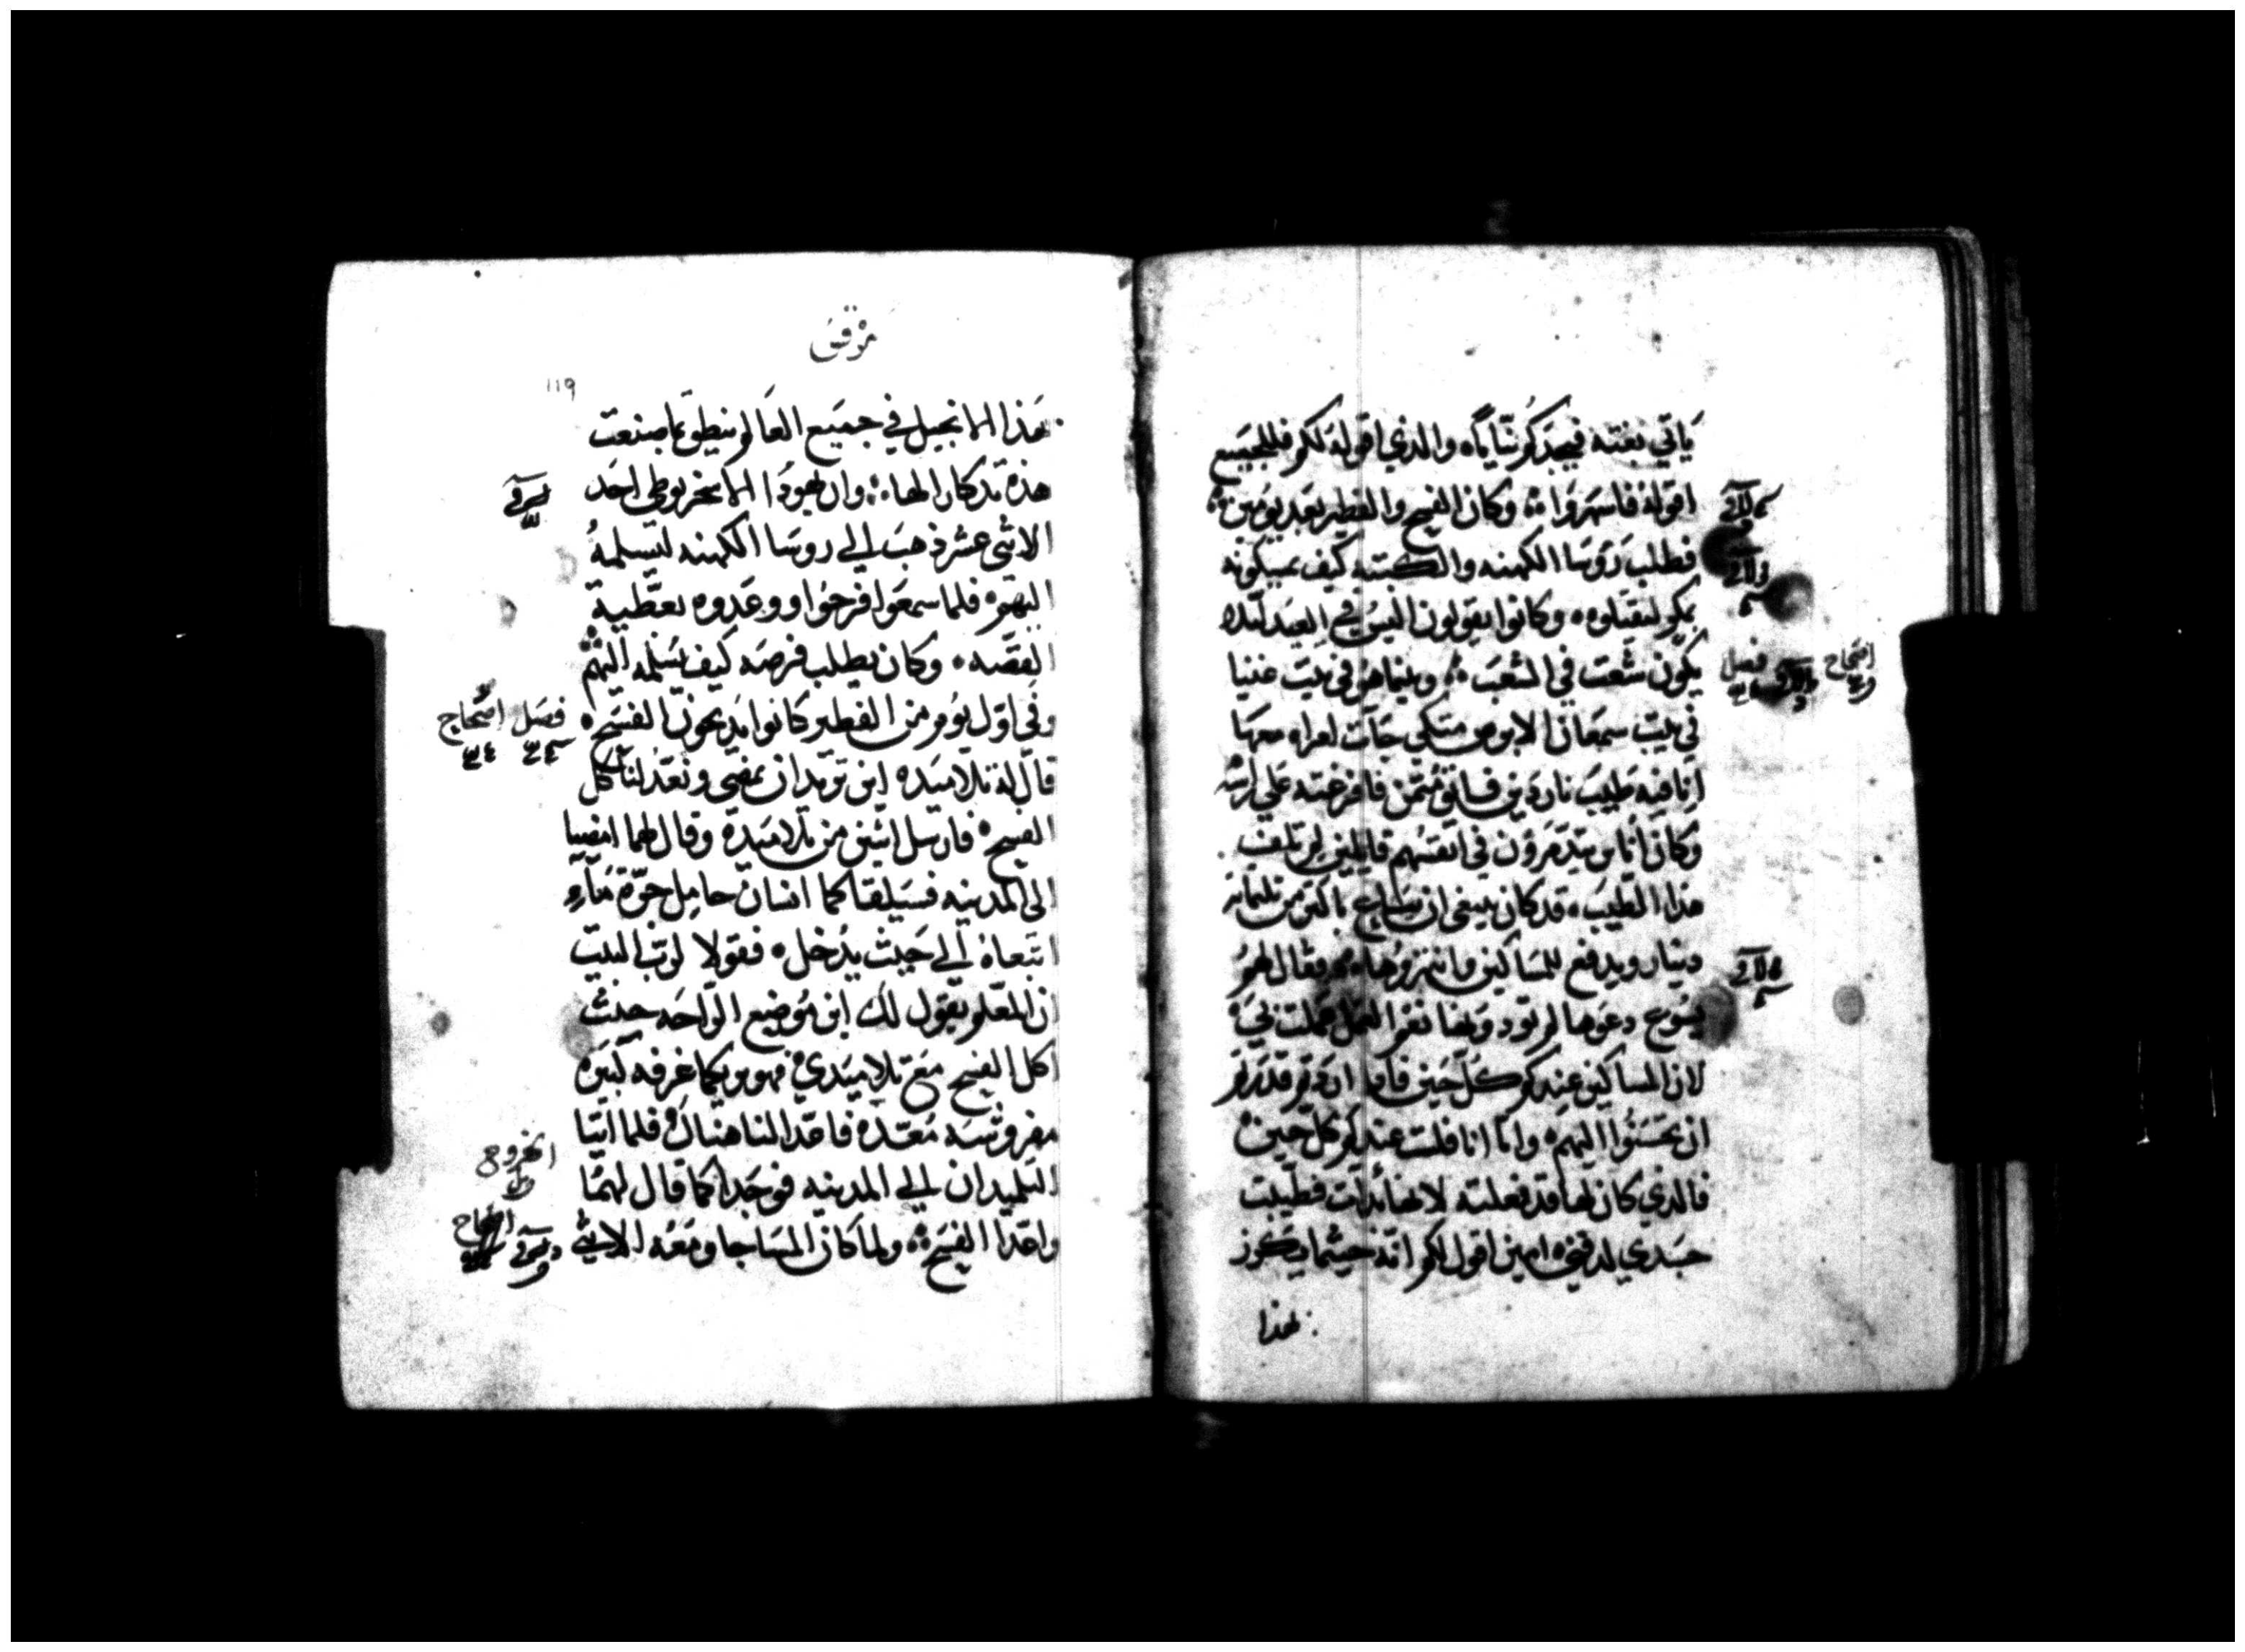 ياتي بغتة فيجدكم نياماه والذي اقوله لكم فللجميع
اقوله فاسهروا ه وكان الفسح والفطير بعد يومين ه
فطلب روسا الكهنه والكتبه كيف يمسكونه
بمكر ليقتلوه ه وكانوا يقولون اليس في العيد ليلا
يكون شغت في الشعب ه وبينما هو في بيت عنيا
في بيت سمعان الابرص متكي جات امراه معها
انا فيه طيب ناردين فايق مثمن فافرغته علي راسه
وكان اناس يتدمرون في انفسهم قايلين لم تلف
هذا الطيب ه قد كان ينبغي ان يباع باكثر من تلتمايه
دينار ويدفع للمساكين وانتهروها ه فقال لهم
يسوع دعوها لم تودونها نعم العمل عملت بي ه
لان المساكين عندكم كل حين فاما اردتم قدرتم
ان تحسنوا اليهم ه واما انا فلست عندكم كل حين ه
فالذي كان لها قد فعلته لانها بدات فطيبت
جسدي لدفني ه امين اقول لكم انه حيثما يكرز
بهذا
فصل
اصحاح
مرقس
119
بهذا الانجيل في جميع العالم ينطق بما صنعت
هذه تدكارا لها ه وان يهودا الاسخريوطي احد
الاثنى عشر ذهب الي روسا الكهنه ليسلمه
اليهم ه فلما سمعوا فرحوا ووعدوه بعطية
الفضه ه وكان يطلب فرصه كيف يسلمه اليهم
وفي اول يوم من الفطير كانوا يدبحون الفسح ه
فصل اصحاح
قال له تلاميده اين تريد ان نمضي ونعد لناكل
الفسح ه فارسل اثنين من تلاميده وقال لهما امضيا
الي المدينه فسيلقاكما انسان حامل جرة ماء
اتبعاه الي حيث يدخل ه فقولا لرب البيت
ان المعلم يقول لك اين موضع الراحه حيث
اكل الفسح مع تلاميدي ه فهو يريكما غرفه كبيره
مفروشه معده فاعدا لنا هناك ه فلما اتيا
الخروج
التلميدان الي المدينه فوجدا كما قال لهما
واعدا الفسح ه ولما كان المسا جا ومعه الاثني
اصحاح